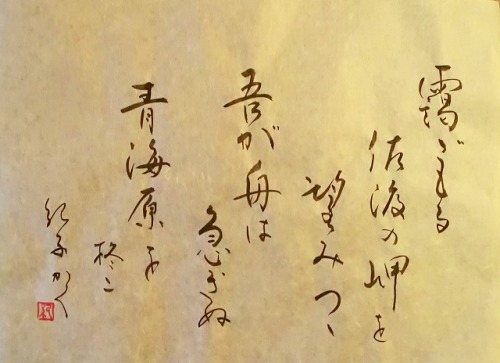 靄ごもる
佐渡の岬を
望みつゝ
吾が舟は
急ぎぬ
青海原を
柊二
紀子かく